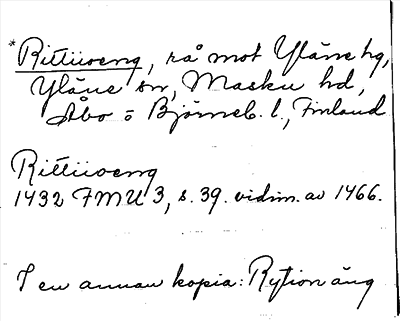 *Rittiioeng, rå mot Yläne hg,
Yläne sn, Masku hd,
Åbo o Björneb. l., Finland
Rittiioeng
1432 FMU 3, s. 39. vidim. av 1466.
I en annan kopia: Rytion äng